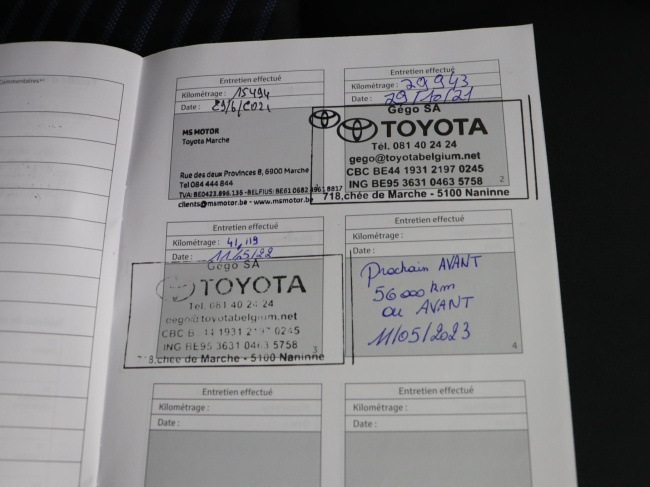 Commentaires
Entretien effectué
Kilométrage : 15494
Date : 29/6/2021
MS MOTOR
Toyota Marche
Rue des deux Provinces 8, 6900 Marche
Tel 084 444 844
TVA: BE0423.896.136 - BELFIUS: BE61 0682 4961 8817
clients@msmotor.be - www.msmotor.be
Entretien effectué
Kilométrage : 29 943
Date : 29/10/21
Gégo SA
TOYOTA
Tél. 081 40 24 24
gego@toyotabelgium.net
CBC BE44 1931 2197 0245
ING BE95 3631 0463 5758
718,chée de Marche - 5100 Naninne
2
Entretien effectué
Kilométrage : 41,119
Date : 11/05/22
Gégo SA
TOYOTA
Tél. 081 40 24 24
gego@toyotabelgium.net
CBC B 44 1931 2197 0245
ING BE95 3631 0463 5758
718,chée de Marche - 5100 Naninne
3
Entretien effectué
Kilométrage :
Date :
Prochain AVANT
56000 km
ou AVANT
11/05/2023
4
Entretien effectué
Kilométrage :
Date :
Entretien effectué
Kilométrage :
Date :